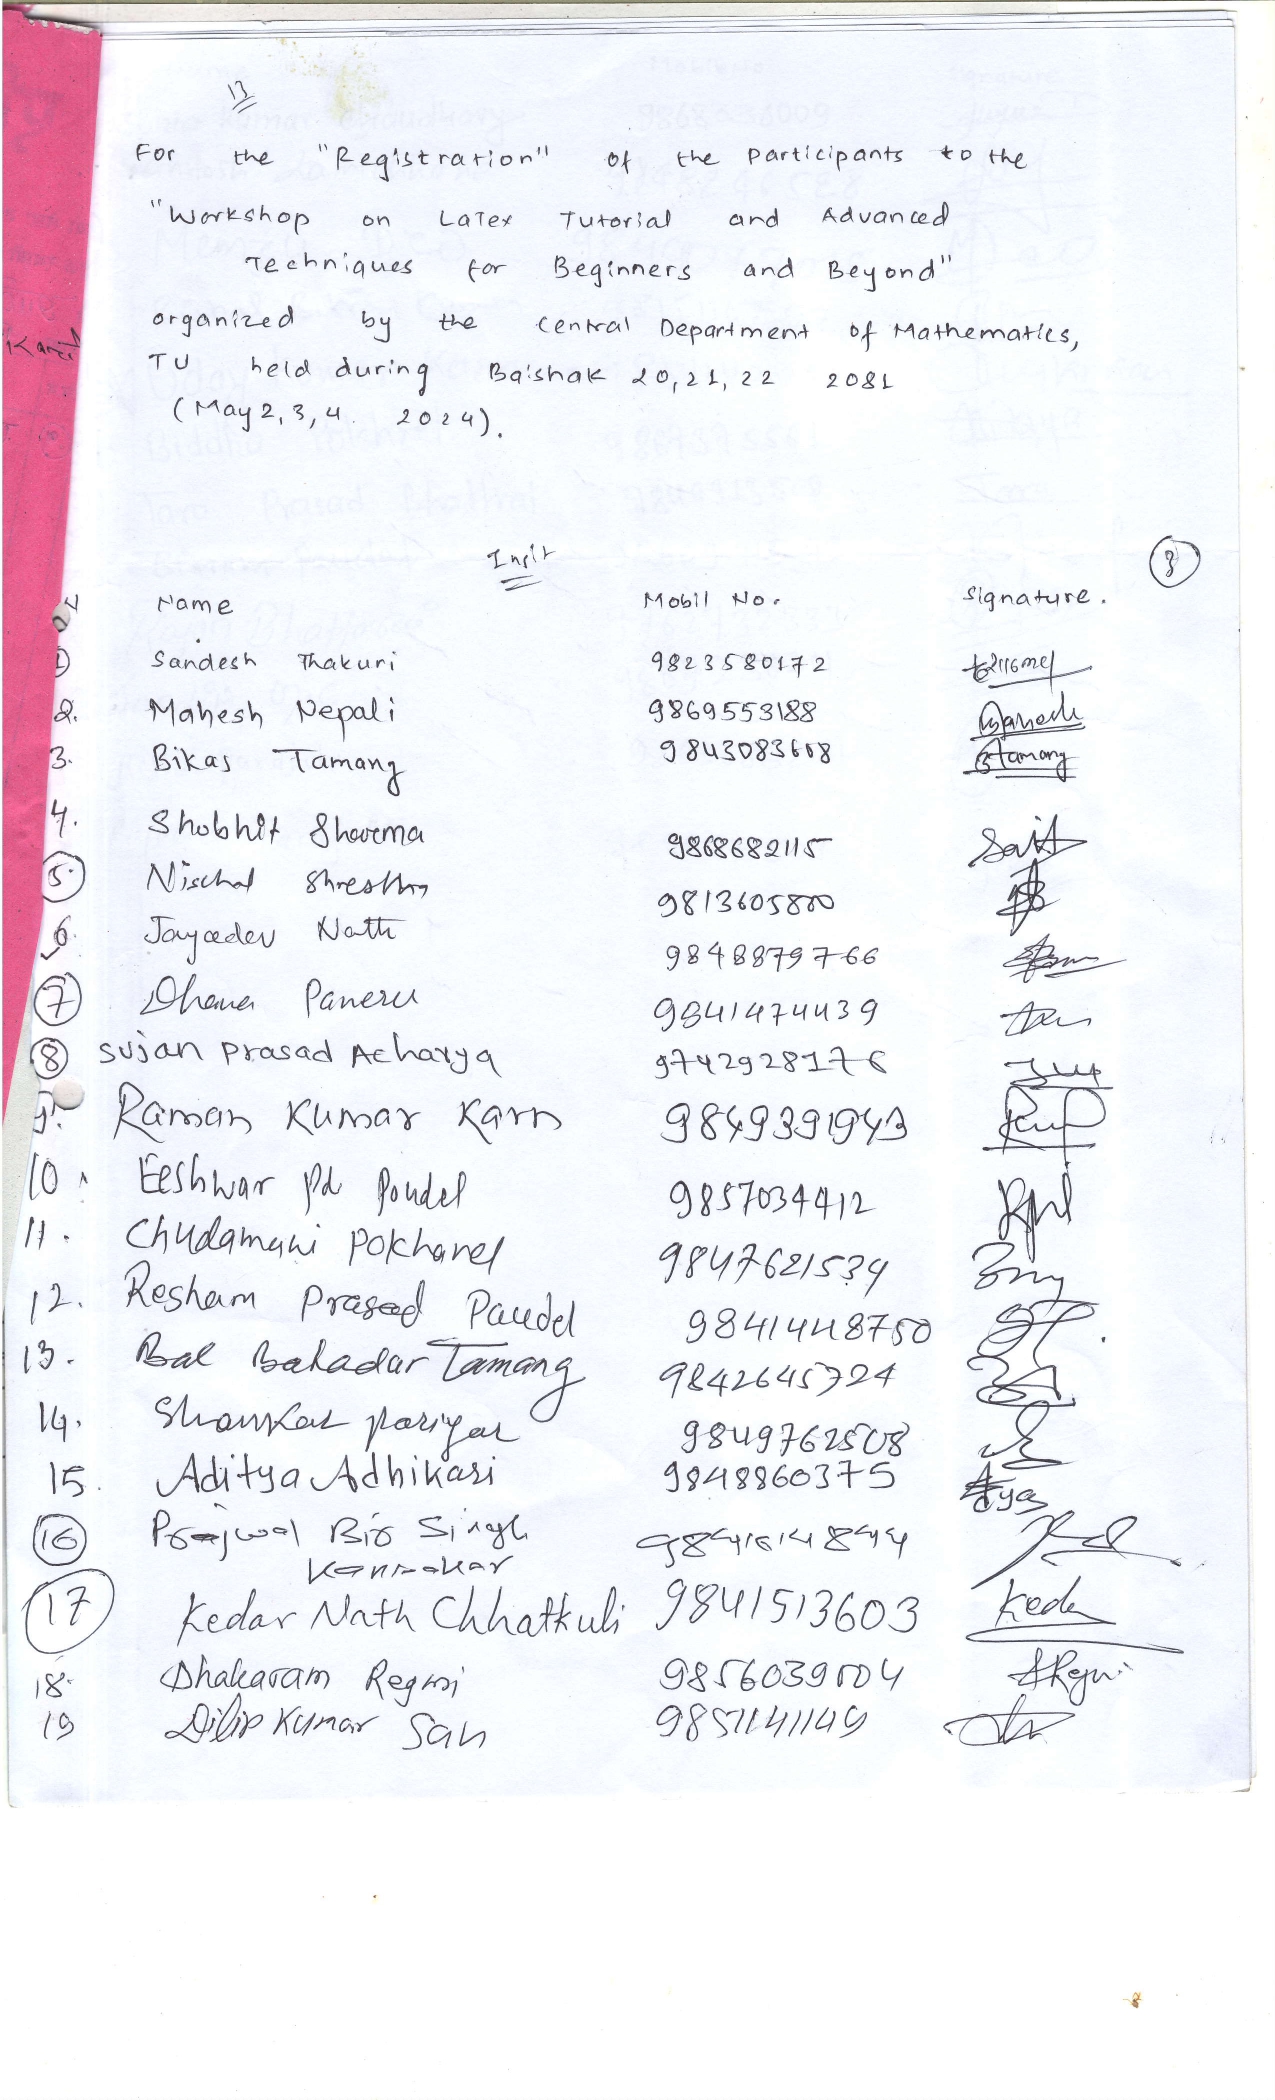 13
For the "Registration" of the Participants to the
"Workshop on LaTex Tutorial and Advanced
Techniques for Beginners and Beyond"
organized by the Central Department of Mathematics,
TU held during Baishak 20, 21, 22 2081
(May 2, 3, 4. 2024).
Name Mobil No. Signature.
1 Sandesh Thakuri 9823580172
2. Mahesh Nepali 9869553188
3. Bikas Tamang 9843083608 BTamang
4. Shobhit Sharma 9868682115
5. Nischal Shrestha 9813605800
6. Jayadev Nath 9848879766
7 Dhana Paneru 9841474439
8 Sujan Prasad Acharya 9742928176
9. Raman Kumar Karn 9849391943
10. Eeshwar Pd Poudel 9857034412
11. Chudamani Pokharel 9847621534
12. Resham Prasad Paudel 9841448750
13. Bal Bahadar Tamang 9842645724
14. Shankar Pariyar 9849762508
15. Aditya Adhikari 9848860375
16 Prajwal Bir Singh
Kansakar
17 Kedar Nath Chhatkuli 9841513603 Keda
18. Dhakaram Regmi 9856039504 DRegmi
19 Dilip Kumar Sah 9851141149